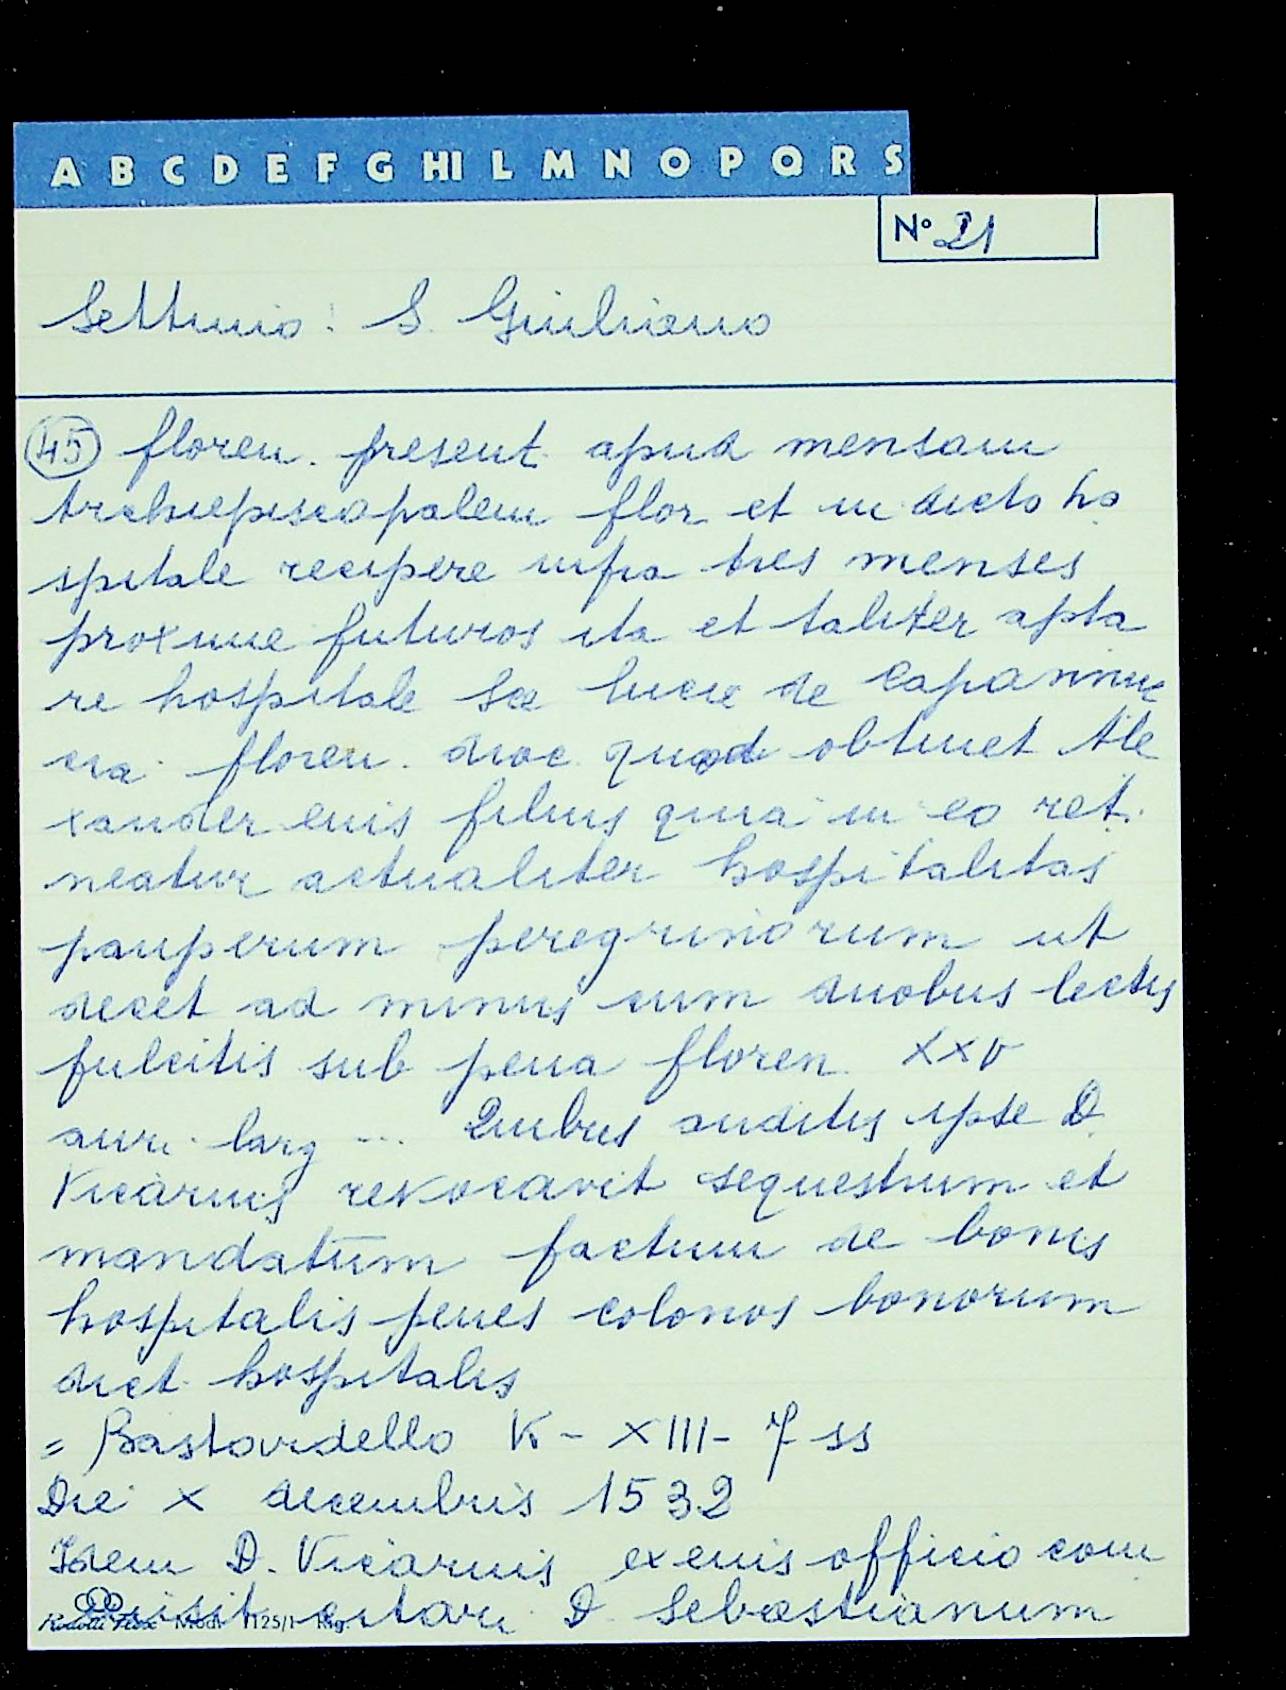 A B C D E F G HI L M N O P Q R S
Nº 21
Settimio: S. Giuliano
45 floren. present. apud mensam
Archiepiscopalem flor et in dicto ho
spitale recipere infra tres menses
proxime futuros ita et taliter apta
re hospitale Sce Lucie de
cia. floren. dioc. quod obtinet Ale
xander eius filius quia in eo reti
neatur actualiter hospitalitas
pauperum peregrinorum ut
decet ad minus cum duobus lectis
fulcitis sub pena floren. XXV
auri. larg ... Quibus auditis ipse D.
Vicarius revocavit sequestrum et
mandatum factum de bonis
hospitalis penes colonos bonorum
dict. hospitalis
= Bastardello K - XIII - 7 ss
Die X decembris 1532
Idem D. Vicarius ex eius officio com
misit citari D. Sebastianum
Mod. 1125/1 Rig.